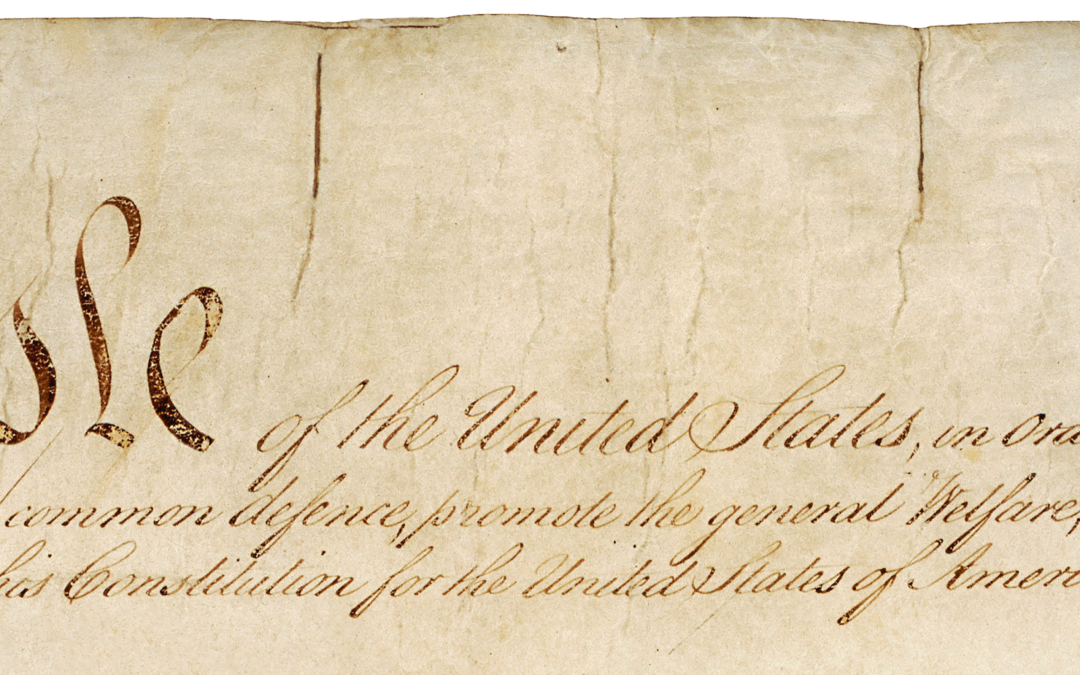 ple
of the United States, in Ord
common defence, promote the general Welfare,
his Constitution for the United States of Ameri